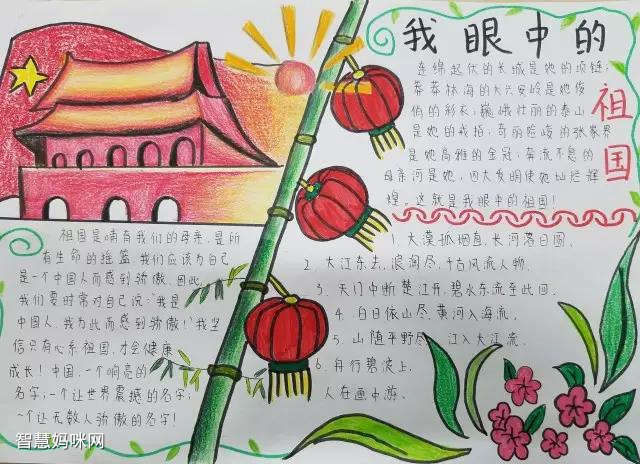 我眼中的
祖国
连绵起伏的长城是她的项链;
莽莽林海的大兴安岭是她俊
俏的彩衣;巍峨壮丽的泰山
是她的戒指;奇丽险峻的张家界
是她高雅的金冠;奔流不息的
母亲河是她,四大发明使她灿烂辉
煌。这就是我眼中的祖国!
1.大漠孤烟直,长河落日圆。
2.大江东去,浪淘尽,千古风流人物。
3.天门中断楚江开,碧水东流至此回。
4.白日依山尽,黄河入海流。
5.山随平野尽,江入大江流。
6.舟行碧波上,
人在画中游。
祖国是哺育我们的母亲,是所
有生命的摇篮,我们应该为自己
是一个中国人而感到骄傲。因此,
我们要时常对自己说:"我是
中国人,我为此而感到骄傲!"我坚
信只有心系祖国,才会健康
成长!中国,一个响亮的
名字;一个让世界震撼的名字;
一个让无数人骄傲的名字!
智慧妈咪网